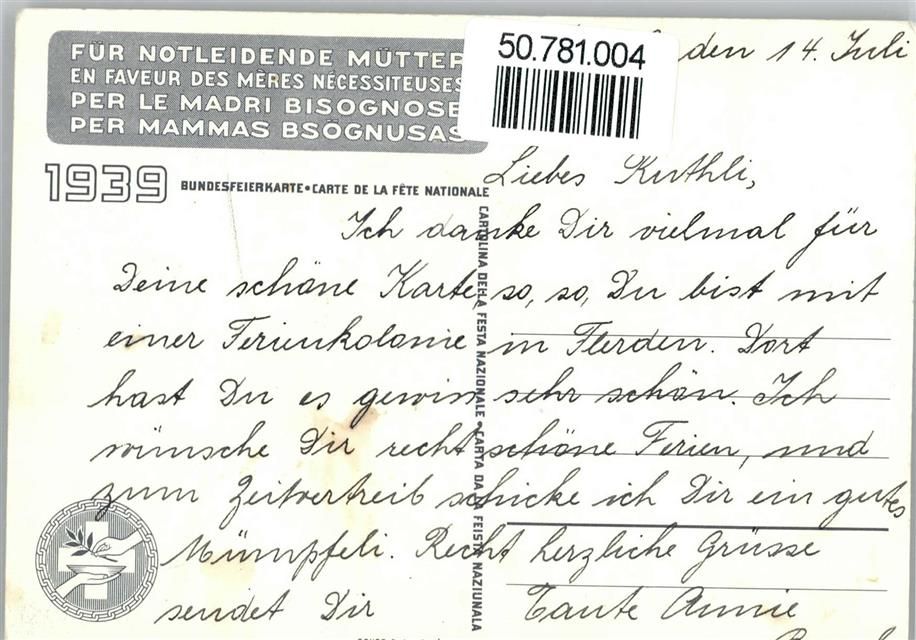 FÜR NOTLEIDENDE MÜTTER
EN FAVEUR DES MÈRES NÉCESSITEUSES
PER LE MADRI BISOGNOSE
PER MAMMAS BSÖGNUSAS
50.781.004
den 14. Juli
1939
BUNDESFEIERKARTE • CARTE DE LA FÊTE NATIONALE
CARTOLINA DELLA FESTA NAZIONALE • CARTA DA LA FEISTA NAZIUNALA
Liebes Ruthli,
Ich danke Dir vielmal für
Deine schöne Karte, so, so, Du bist mit
einer Ferienkolonie in Flerden. Dort
hast Du es gewiss sehr schön. Ich
wünsche Dir recht schöne Ferien, und
zum Zeitvertreib schicke ich Dir ein gutes
Mümpfeli. Recht herzliche Grüsse
sendet Dir Tante Annie